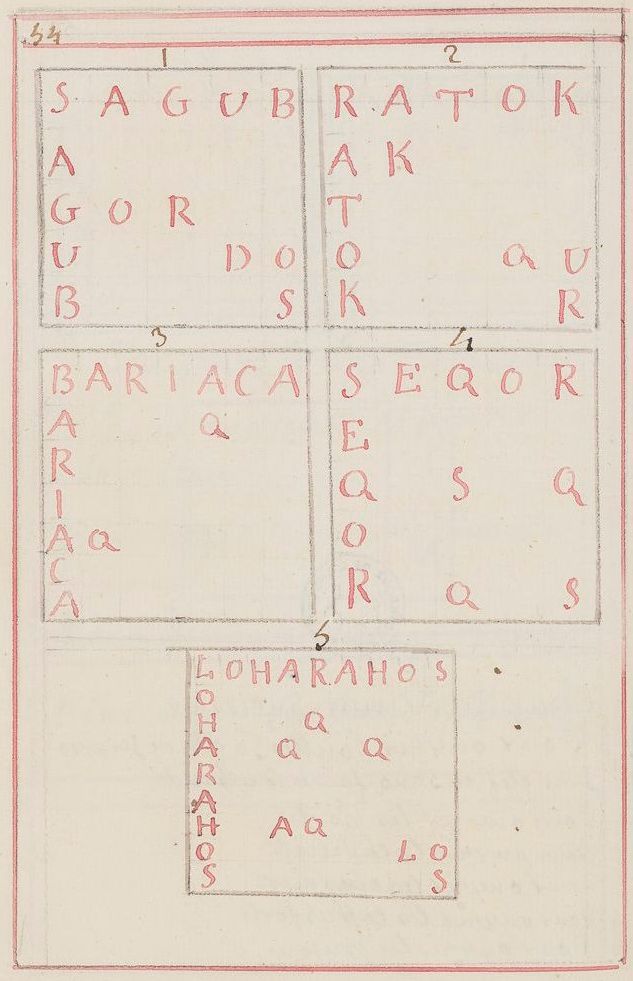 54
1
S A G U B
A
G O R
U D O
B S
2
R A T O K
A K
T
O Q U
K R
3
B A R I A C A
A Q
R
I
A Q
C
A
4
S E Q O R
E
Q S Q
O
R Q S
5
L O H A R A H O S
O
H Q
A Q Q
R
A
H A Q
O L O
S S